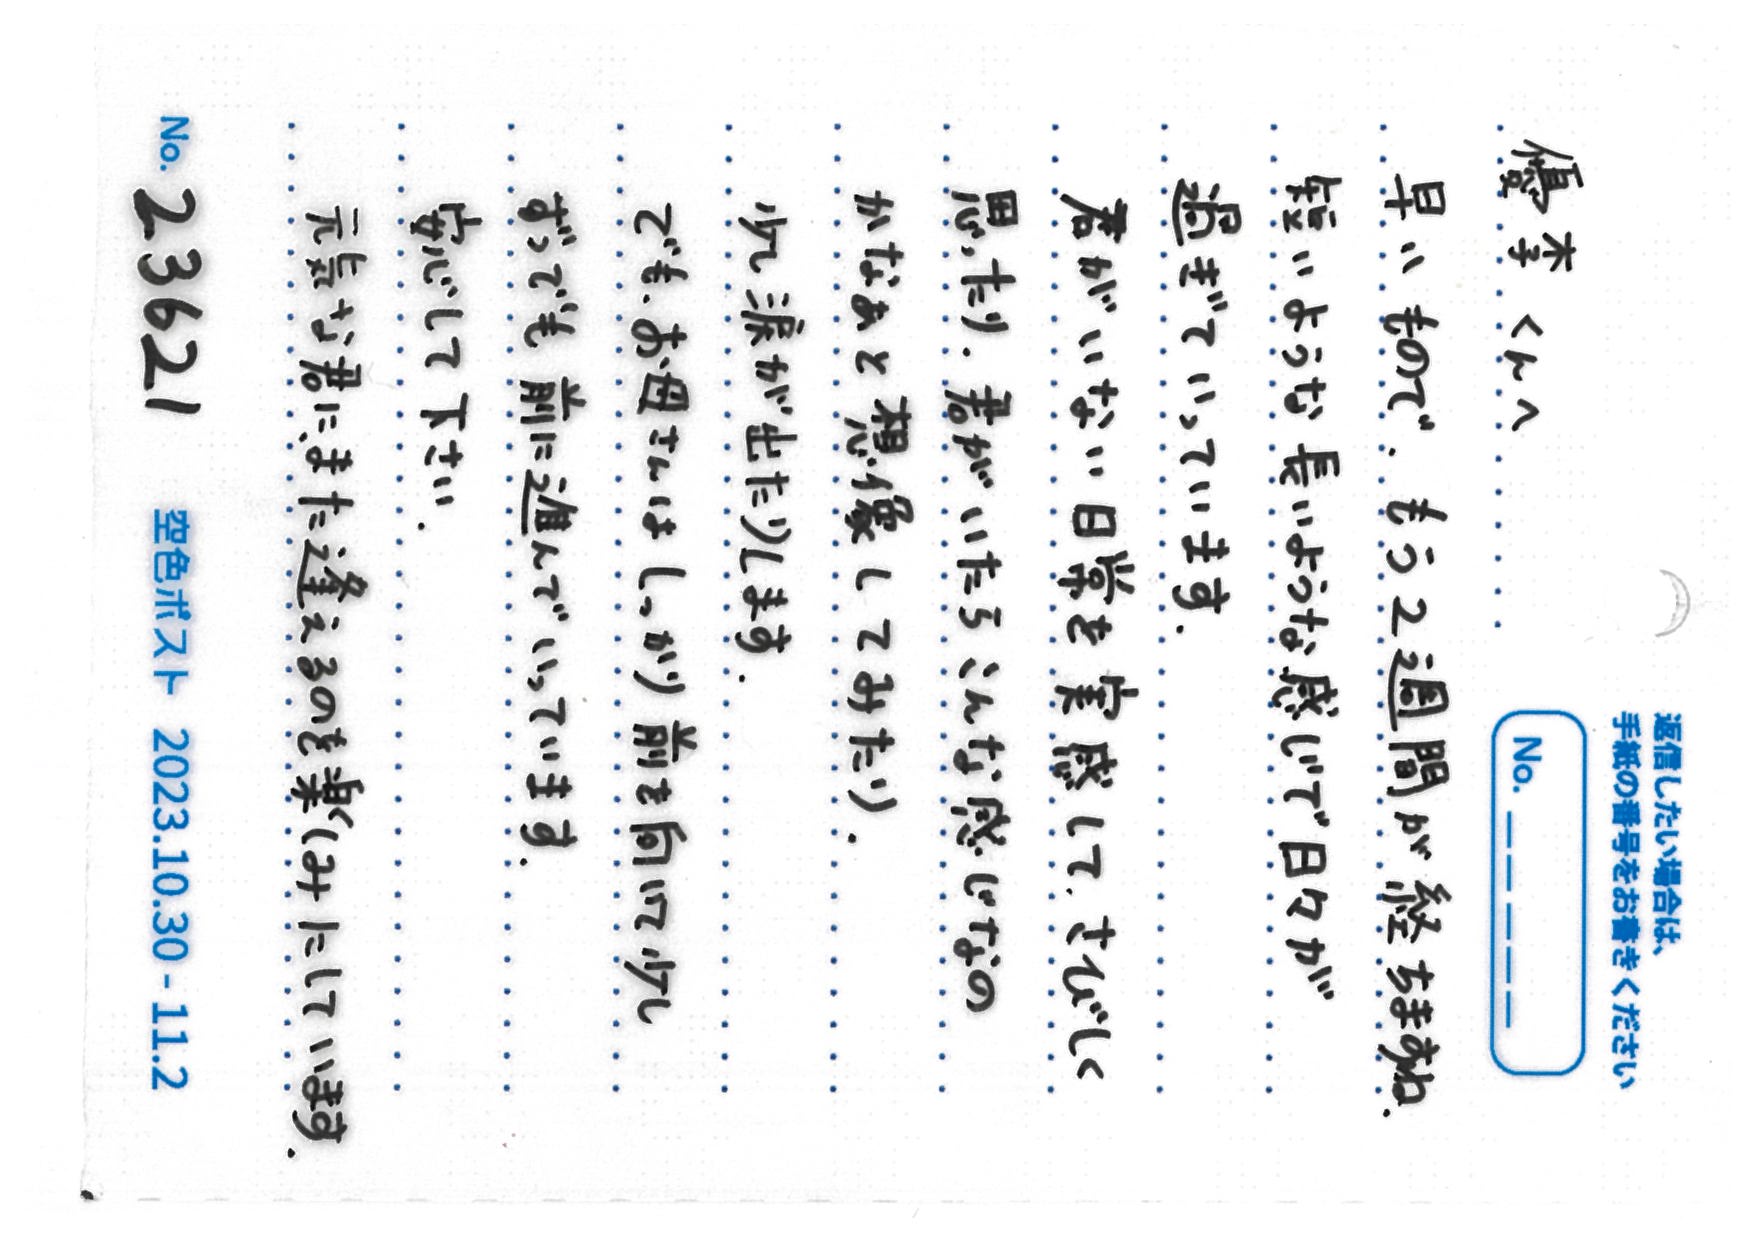 返信したい場合は、
手紙の番号をお書きください
No. _ _ _ _ _
優李くんへ
早いもので、もう2週間が経ちますね.
短いような長いような感じで日々が
過ぎていっています.
君がいない日常を実感して、さびしく
思ったり、君がいたらこんな感じなの
かなぁと想像してみたり、
少し涙が出たりします.
でも、お母さんはしっかり前を向いて少し
ずつでも前に進んでいっています.
安心して下さい.
元気な君に、また逢えるのを楽しみにしています.
No. 23621
空色ポスト 2023.10.30 - 11.2